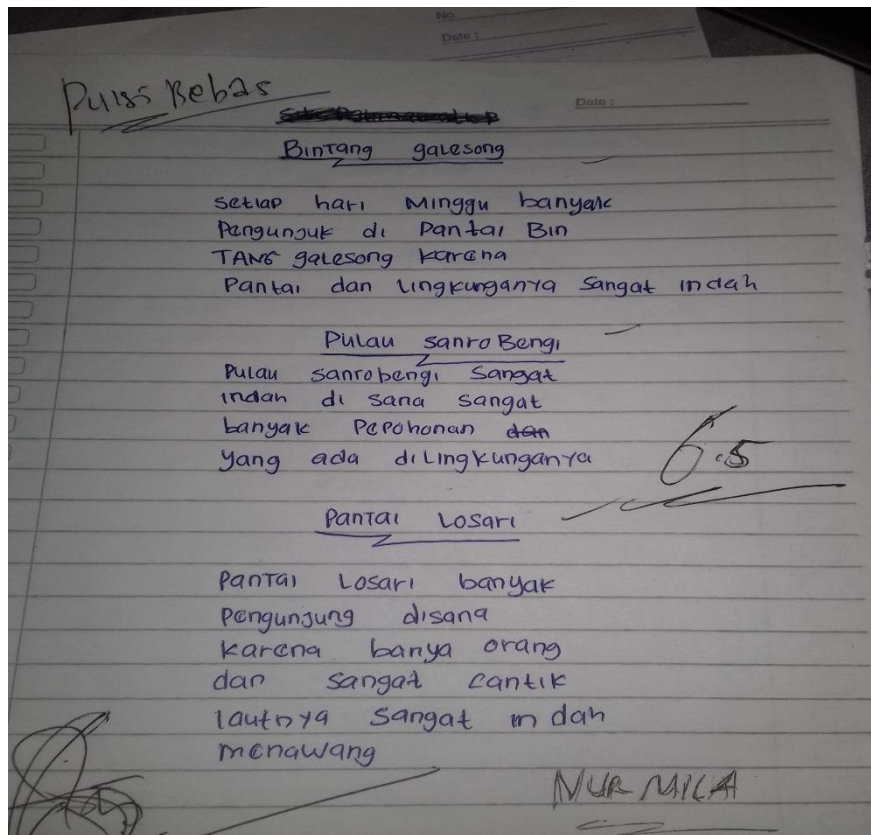 No.
Date :
Puisi Bebas
Date :
BinTang galesong
Setiap hari Minggu banyak
Pengunjuk di Pantai Bin
TANG galesong karena
Pantai dan Lingkunganya Sangat indah
Pulau sanro Bengi
Pulau sanrobengi Sangat
indah di sana sangat
banyak Pepohonan dan
yang ada diLingkunganya
6.5
PanTai Losari
PanTai Losari banyak
Pengunjung disana
karena banya orang
dan sangat cantik
lautnya Sangat in dah
menawang
NUR MILA